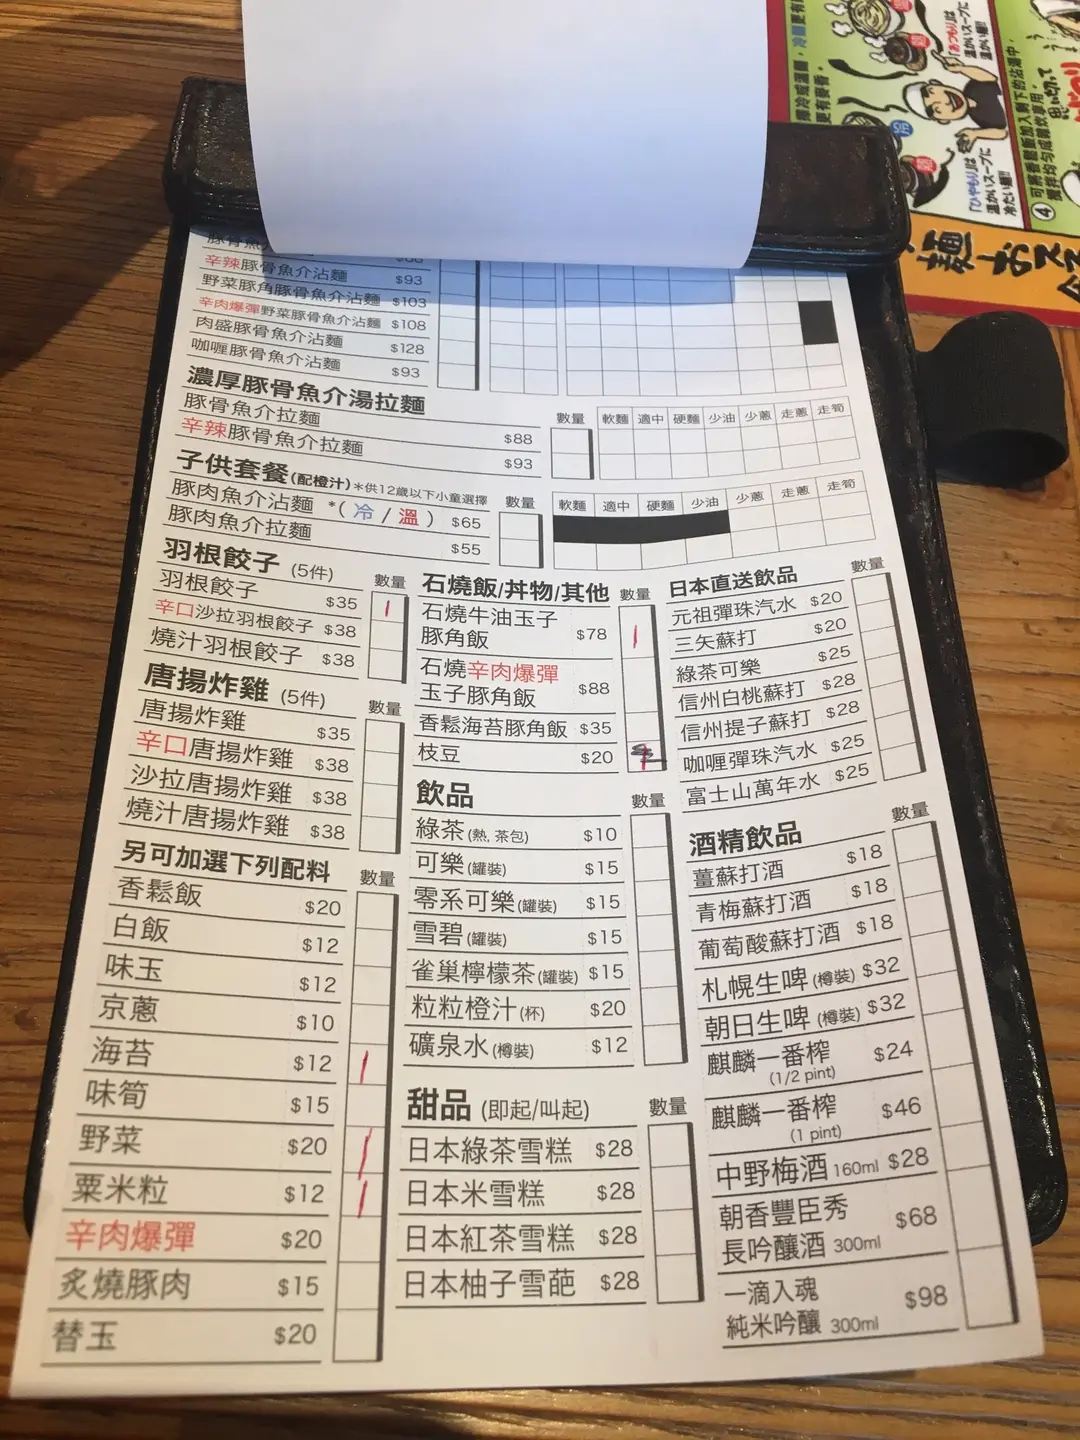 辛辣豚骨魚介沾麵 $93
野菜豚角豚骨魚介沾麵 $103
辛肉爆彈野菜豚骨魚介沾麵 $108
肉盛豚骨魚介沾麵 $128
咖喱豚骨魚介沾麵 $93
濃厚豚骨魚介湯拉麵
數量 軟麵 適中 硬麵 少油 少蔥 走蔥 走筍
豚骨魚介拉麵 $88
辛辣豚骨魚介拉麵 $93
子供套餐(配橙汁)*供12歲以下小童選擇
數量 軟麵 適中 硬麵 少油 少蔥 走蔥 走筍
豚肉魚介沾麵 *(冷/溫) $65
豚肉魚介拉麵 $55
羽根餃子 (5件) 數量
羽根餃子 $35 1
辛口沙拉羽根餃子 $38
燒汁羽根餃子 $38
唐揚炸雞 (5件) 數量
唐揚炸雞 $35
辛口唐揚炸雞 $38
沙拉唐揚炸雞 $38
燒汁唐揚炸雞 $38
另可加選下列配料 數量
香鬆飯 $20
白飯 $12
味玉 $12
京蔥 $10
海苔 $12 1
味筍 $15
野菜 $20 1
粟米粒 $12 1
辛肉爆彈 $20
炙燒豚肉 $15
替玉 $20
石燒飯/丼物/其他 數量
石燒牛油玉子
豚角飯 $78 1
石燒辛肉爆彈
玉子豚角飯 $88
香鬆海苔豚角飯 $35
枝豆 $20
飲品 數量
綠茶(熱, 茶包) $10
可樂(罐裝) $15
零系可樂(罐裝) $15
雪碧(罐裝) $15
雀巢檸檬茶(罐裝) $15
粒粒橙汁(杯) $20
礦泉水(樽裝) $12
甜品 (即起/叫起) 數量
日本綠茶雪糕 $28
日本米雪糕 $28
日本紅茶雪糕 $28
日本柚子雪葩 $28
日本直送飲品 數量
元祖彈珠汽水 $20
三矢蘇打 $20
綠茶可樂 $25
信州白桃蘇打 $28
信州提子蘇打 $28
咖喱彈珠汽水 $25
富士山萬年水 $25
酒精飲品 數量
薑蘇打酒 $18
青梅蘇打酒 $18
葡萄酸蘇打酒 $18
札幌生啤(樽裝) $32
朝日生啤(樽裝) $32
麒麟一番榨 $24
(1/2 pint)
麒麟一番榨 $46
(1 pint)
中野梅酒 160ml $28
朝香豐臣秀
長吟釀酒 300ml $68
一滴入魂
純米吟釀 300ml $98